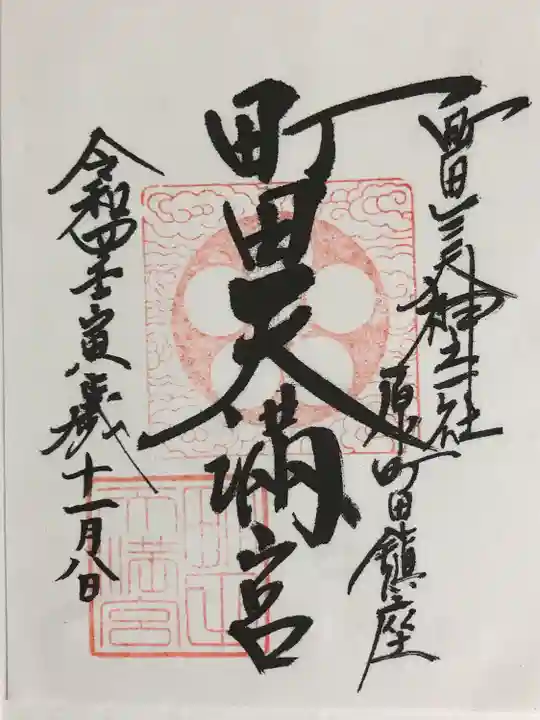 町田三天神社
原町田鎮座
町田天満宮
令和四壬寅歳十一月八日
町田天満宮